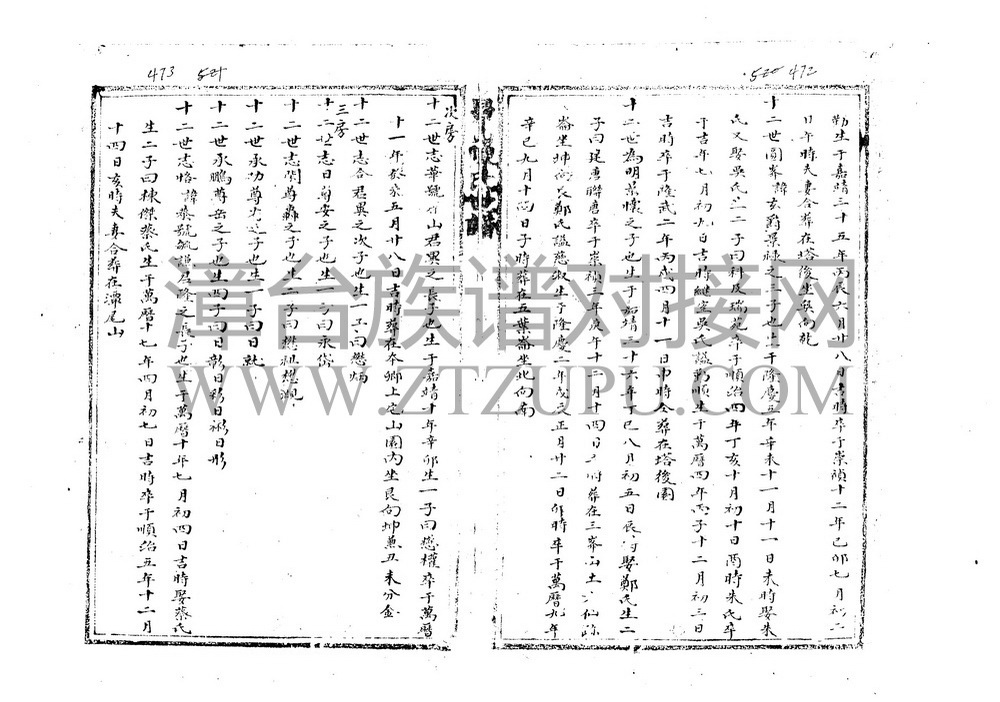 520 472
勤生于嘉靖三十五年丙辰六月廿八日吉時卒于崇禎十二年己卯七月初二
日午時夫妻合葬在塔後坐巽向乾
十二世圓峯諱亥爵景祿之二子也生于隆慶五年辛未十一月十一日未時娶朱
氏又娶吳氏生二子曰科及瑞苑卒于順治四年丁亥十月初十日酉時朱氏卒
于吉年七月初九日吉時繼室吳氏謚勤順生于萬曆四年丙子十二月初三日
吉時卒于隆武二年丙戌四月十一日巾時仝葬在塔後園
十二世爲明景懷之子也生于嘉靖三十六年丁巳八月初五日辰時娶鄭氏生二
子曰廷唐聯唐卒于崇禎三年庚午十二月十四日時葬在三峯山土仙跡
崙坐坤向艮鄭氏謚慈淑生于隆慶二年戊辰正月廿二日卯時卒于萬曆九年
辛巳九月十四日子時葬在五葉崙坐北向南
氏世譜
473 521
次房
十二世志華號山君異之長子也生于嘉靖十年辛卯生一子曰懋權卒于萬曆
十一年癸未五月廿八日吉時葬在本鄉上宅山園內坐艮向坤兼丑未分金
十二世志合君異之次子也生一子曰懋炳
三房
十二世志日尊安之子也生一子曰承岱
十二世志閑尊轟之子也生二子曰懋祖懋
十二世承功尊之子也生一子曰就
十二世承鵬尊岳之子也生四子曰日彰日彩日彬日形
十二世志恪諱泰號毓源君隆之長子也生于萬曆十年七月初四日吉時娶蔡氏
生二子曰棟傑蔡氏生于萬曆十七年四月初七日吉時卒于順治五年十二月
十四日亥時夫妻合葬在漂尾山
漳台族谱对接网
WWW.ZTZUPU.COM